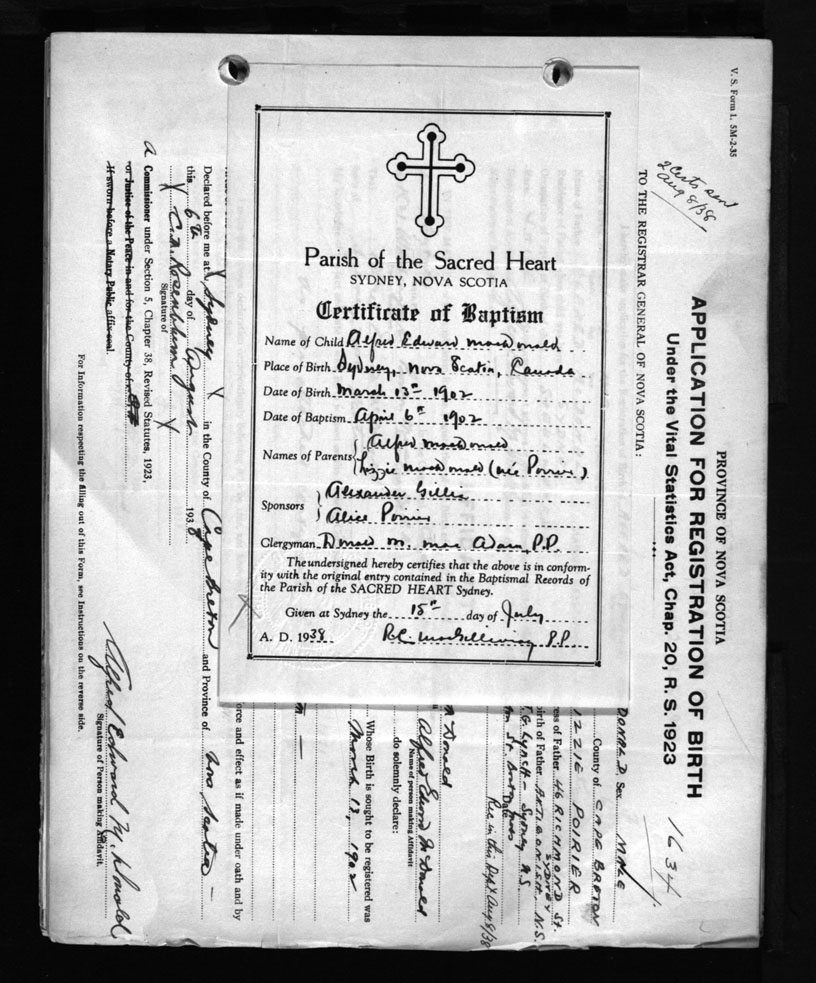 Parish of the Sacred Heart
SYDNEY, NOVA SCOTIA
Certificate of Baptism
Name of Child Alfred Edward MacDonald
Place of Birth Sydney, Nova Scotia, Canada
Date of Birth March 13th 1902
Date of Baptism April 6th 1902
Names of Parents Alfred MacDonald
Lizzie MacDonald (née Poirier)
Sponsors Alexander Gillis
Alice Poirier
Clergyman Donald M. MacAdam, P.P.
The undersigned hereby certifies that the above is in conform-
ity with the original entry contained in the Baptismal Records of
the Parish of the SACRED HEART Sydney.
Given at Sydney the 15th day of July
A. D. 1938 R.C. MacGillivray P.P.
V. S. Form 1. 5M-2-35
2 Certs sent
Aug 8/38
PROVINCE OF NOVA SCOTIA
APPLICATION FOR REGISTRATION OF BIRTH
Under the Vital Statistics Act, Chap. 20, R. S. 1923
1634
TO THE REGISTRAR GENERAL OF NOVA SCOTIA:
DONALD. Sex MALE
County of CAPE BRETON
POIRIER
ess of Father 46 RICHMOND St.
SYDNEY
irth of Father ANTIGONISH, N.S.
T.G. Lynch - Sydney N.S.
Date
Rec in this Dept Aug 8/38
Donald
Alfred Edward McDonald
Name of person making Affidavit
do solemnly declare:
Whose Birth is sought to be registered was
March 13, 1902
orce and effect as if made under oath and by
Declared before me at X Sydney X in the County of Cape Breton and Province of Nova Scotia
this 6th day of August 1938
X C.M. Rosenblum X
Signature of
A Commissioner under Section 5, Chapter 38, Revised Statutes, 1923,
or Justice of the Peace in and for the County of
If sworn before a Notary Public affix seal.
Alfred Edward McDonald
Signature of Person making Affidavit.
For Information respecting the filling out of this Form, see Instructions on the reverse side.